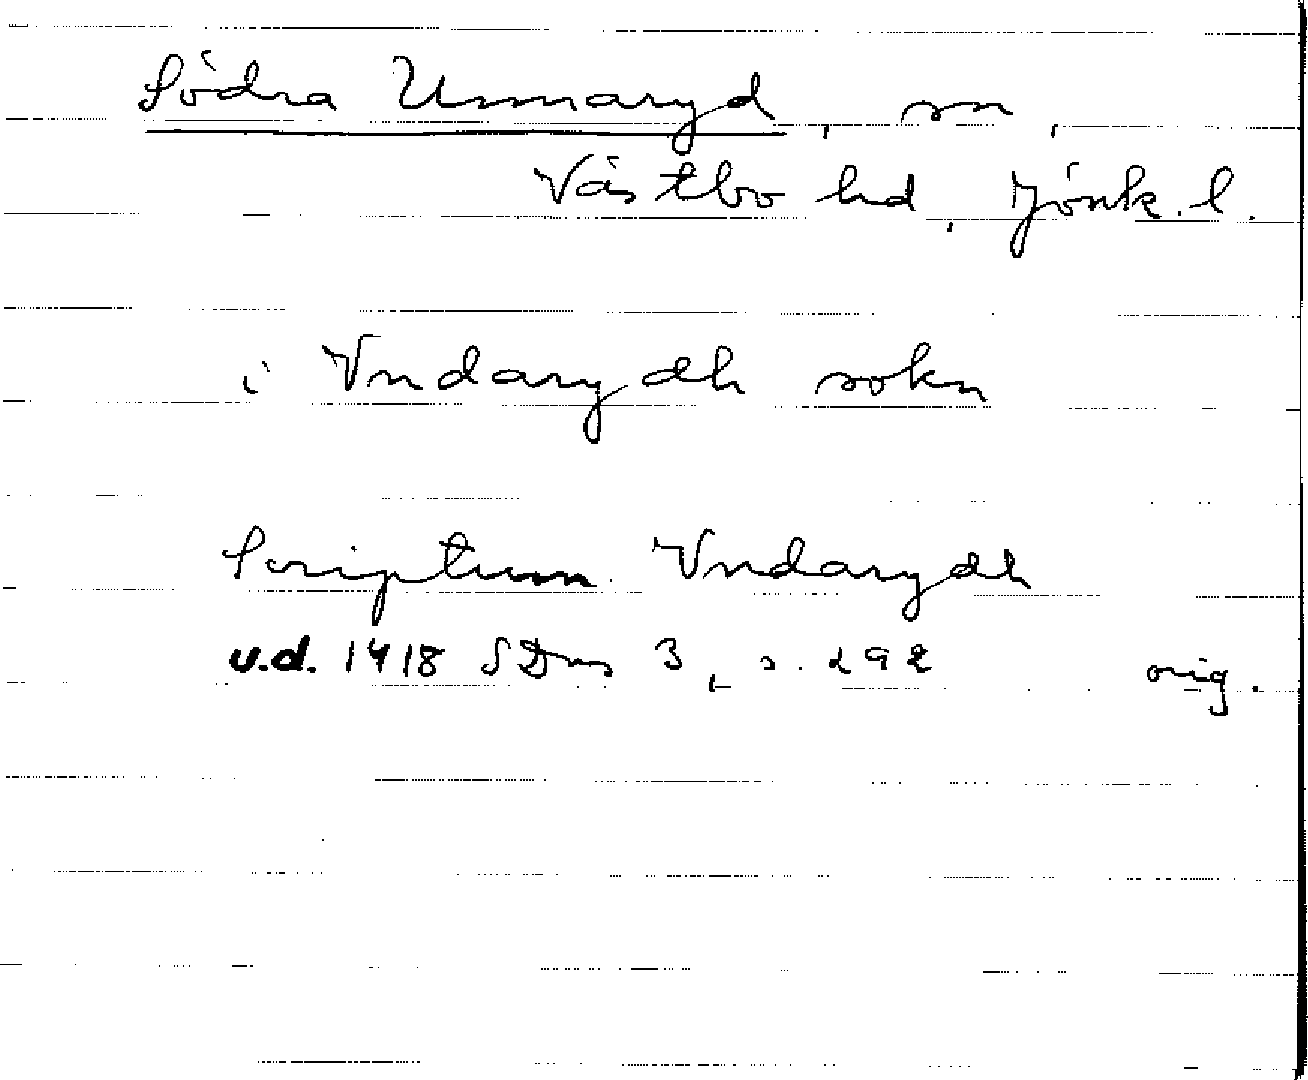 Södra Unnaryd, sn,
Västbo hd, Jönk. l.
i Vndarydh sokn
Scriptum Vndarydh
u.d. 1418 SDns 3, s. 292 orig.